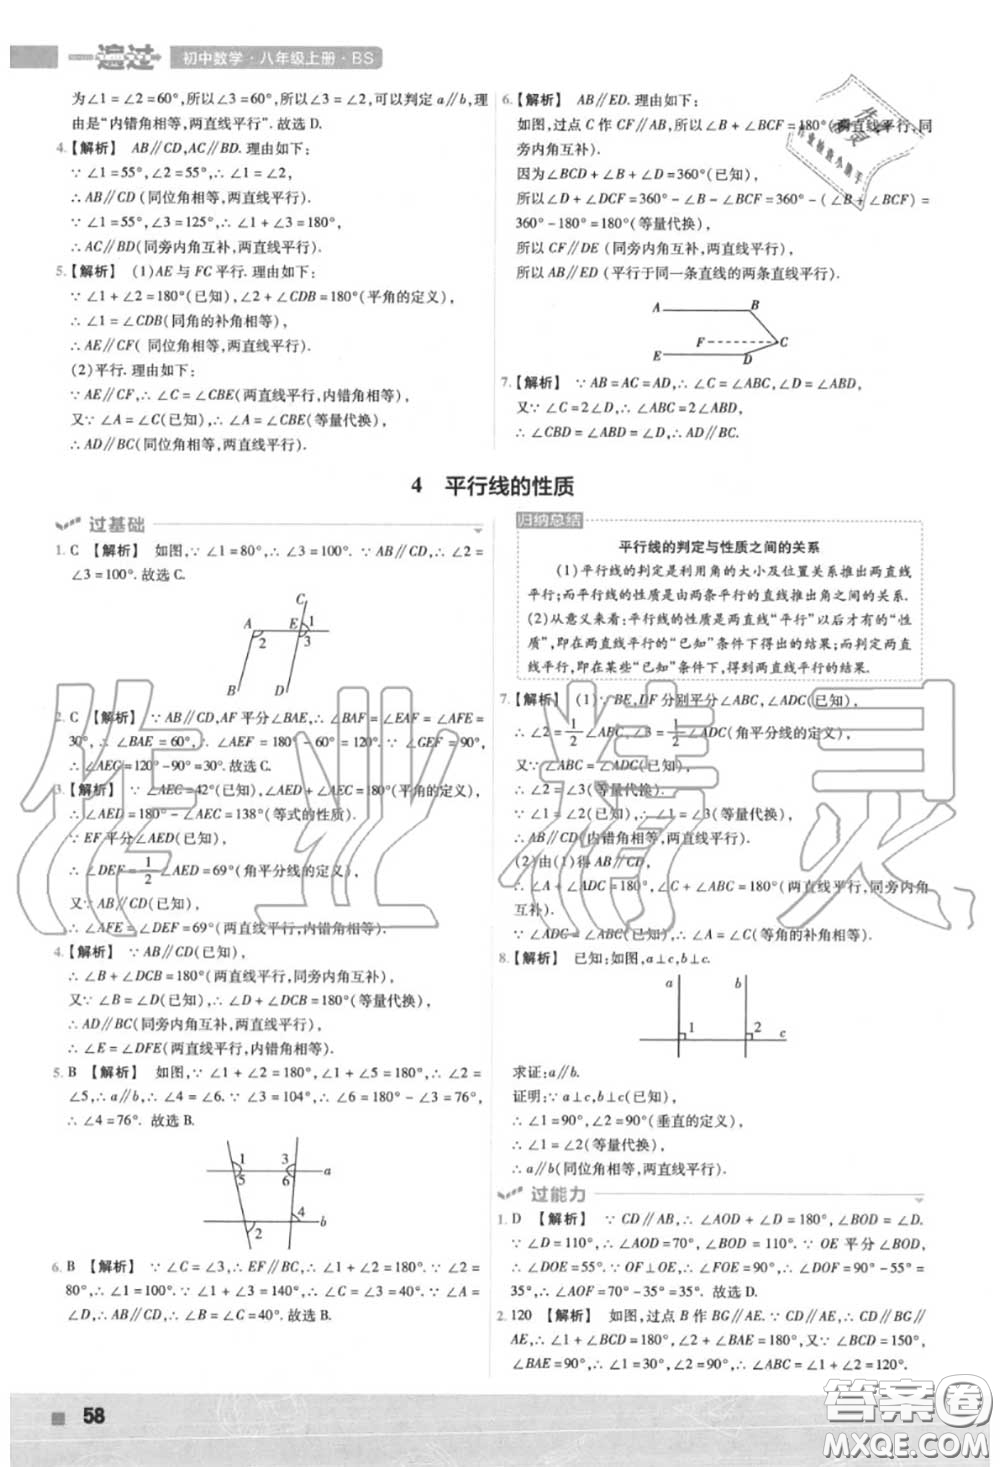 一遍过 初中数学·八年级上册·BS
为∠1=∠2=60°,所以∠3=60°,所以∠3=∠2,可以判定a∥b,理
由是“内错角相等,两直线平行”.故选D.
4.【解析】 AB∥CD,AC∥BD.理由如下:
∵∠1=55°,∠2=55°,∴∠1=∠2,
∴AB∥CD(同位角相等,两直线平行).
∵∠1=55°,∠3=125°,∴∠1+∠3=180°,
∴AC∥BD(同旁内角互补,两直线平行).
5.【解析】 (1)AE与FC平行.理由如下:
∵∠1+∠2=180°(已知),∠2+∠CDB=180°(平角的定义),
∴∠1=∠CDB(同角的补角相等),
∴AE∥CF(同位角相等,两直线平行).
(2)平行.理由如下:
∵AE∥CF,∴∠C=∠CBE(两直线平行,内错角相等),
又∵∠A=∠C(已知),∴∠A=∠CBE(等量代换),
∴AD∥BC(同位角相等,两直线平行).
6.【解析】 AB∥ED.理由如下:
如图,过点C作CF∥AB,所以∠B+∠BCF=180°(两直线平行,同
旁内角互补).
因为∠BCD+∠B+∠D=360°(已知),
所以∠D+∠DCF=360°-∠B-∠BCF=360°-(∠B+∠BCF)=
360°-180°=180°(等量代换),
所以CF∥DE(同旁内角互补,两直线平行),
所以AB∥ED(平行于同一条直线的两条直线平行).
A B
F C
E D
7.【解析】 ∵AB=AC=AD,∴∠C=∠ABC,∠D=∠ABD,
又∵∠C=2∠D,∴∠ABC=2∠ABD,
∴∠CBD=∠ABD=∠D,∴AD∥BC.
4 平行线的性质
过基础
1.C 【解析】 如图,∵∠1=80°,∴∠3=100°.∵AB∥CD,∴∠2=
∠3=100°.故选C.
C
A E 1
2 3
B D
2.C 【解析】 ∵AB∥CD,AF平分∠BAE,∴∠BAF=∠EAF=∠AFE=
30°,∴∠BAE=60°,∴∠AEF=180°-60°=120°.∵∠GEF=90°,
∴∠AEG=120°-90°=30°.故选C.
3.【解析】 ∵∠AEC=42°(已知),∠AED+∠AEC=180°(平角的定义),
∴∠AED=180°-∠AEC=138°(等式的性质).
∵EF平分∠AED(已知),
∴∠DEF=1/2∠AED=69°(角平分线的定义),
又∵AB∥CD(已知),
∴∠AFE=∠DEF=69°(两直线平行,内错角相等).
4.【解析】 ∵AB∥CD(已知),
∴∠B+∠DCB=180°(两直线平行,同旁内角互补),
又∵∠B=∠D(已知),∴∠D+∠DCB=180°(等量代换),
∴AD∥BC(同旁内角互补,两直线平行),
∴∠E=∠DFE(两直线平行,内错角相等).
5.B 【解析】 如图,∵∠1+∠2=180°,∠1+∠5=180°,∴∠2=
∠5,∴a∥b,∴∠4=∠6.∵∠3=104°,∴∠6=180°-∠3=76°,
∴∠4=76°.故选B.
1 3
5 6 a
4
2 b
6.B 【解析】 ∵∠C=∠3,∴EF∥BC,∴∠1+∠2=180°.∵∠2=
80°,∴∠1=100°.∵∠1+∠3=140°,∴∠C=∠3=40°.∵∠A=
∠D,∴AB∥CD,∴∠B=∠C=40°.故选B.
归纳总结
平行线的判定与性质之间的关系
(1)平行线的判定是利用角的大小及位置关系推出两直线
平行;而平行线的性质是由两条平行的直线推出角之间的关系.
(2)从意义来看:平行线的性质是两直线“平行”以后才有的“性
质”,即在两直线平行的“已知”条件下得出的结果;而判定两直
线平行,即在某些“已知”条件下,得到两直线平行的结果.
7.【解析】 (1)∵BE,DF分别平分∠ABC,∠ADC(已知),
∴∠2=1/2∠ABC,∠3=1/2∠ADC(角平分线的定义),
又∵∠ABC=∠ADC(已知),
∴∠2=∠3(等量代换).
∵∠1=∠2(已知),∴∠1=∠3(等量代换),
∴AB∥CD(内错角相等,两直线平行).
(2)由(1)得AB∥CD,
∴∠A+∠ADC=180°,∠C+∠ABC=180°(两直线平行,同旁内角
互补).
∵∠ADC=∠ABC(已知),∴∠A=∠C(等角的补角相等).
8.【解析】 已知:如图,a⊥c,b⊥c.
a b
1 2 c
求证:a∥b.
证明:∵a⊥c,b⊥c(已知),
∴∠1=90°,∠2=90°(垂直的定义),
∴∠1=∠2(等量代换),
∴a∥b(同位角相等,两直线平行).
过能力
1.D 【解析】 ∵CD∥AB,∴∠AOD+∠D=180°,∠BOD=∠D.
∵∠D=110°,∴∠AOD=70°,∠BOD=110°.∵OE平分∠BOD,
∴∠DOE=55°.∵OF⊥OE,∴∠FOE=90°,∴∠DOF=90°-55°=
35°,∴∠AOF=70°-35°=35°.故选D.
2.120 【解析】 如图,过点B作BG∥AE.∵CD∥AE,∴CD∥BG∥
AE,∴∠1+∠BCD=180°,∠2+∠BAE=180°,又∵∠BCD=150°,
∠BAE=90°,∴∠1=30°,∠2=90°,∴∠ABC=∠1+∠2=120°.
58
作业精灵
作业检查小助手
答案圈
MXQE.COM